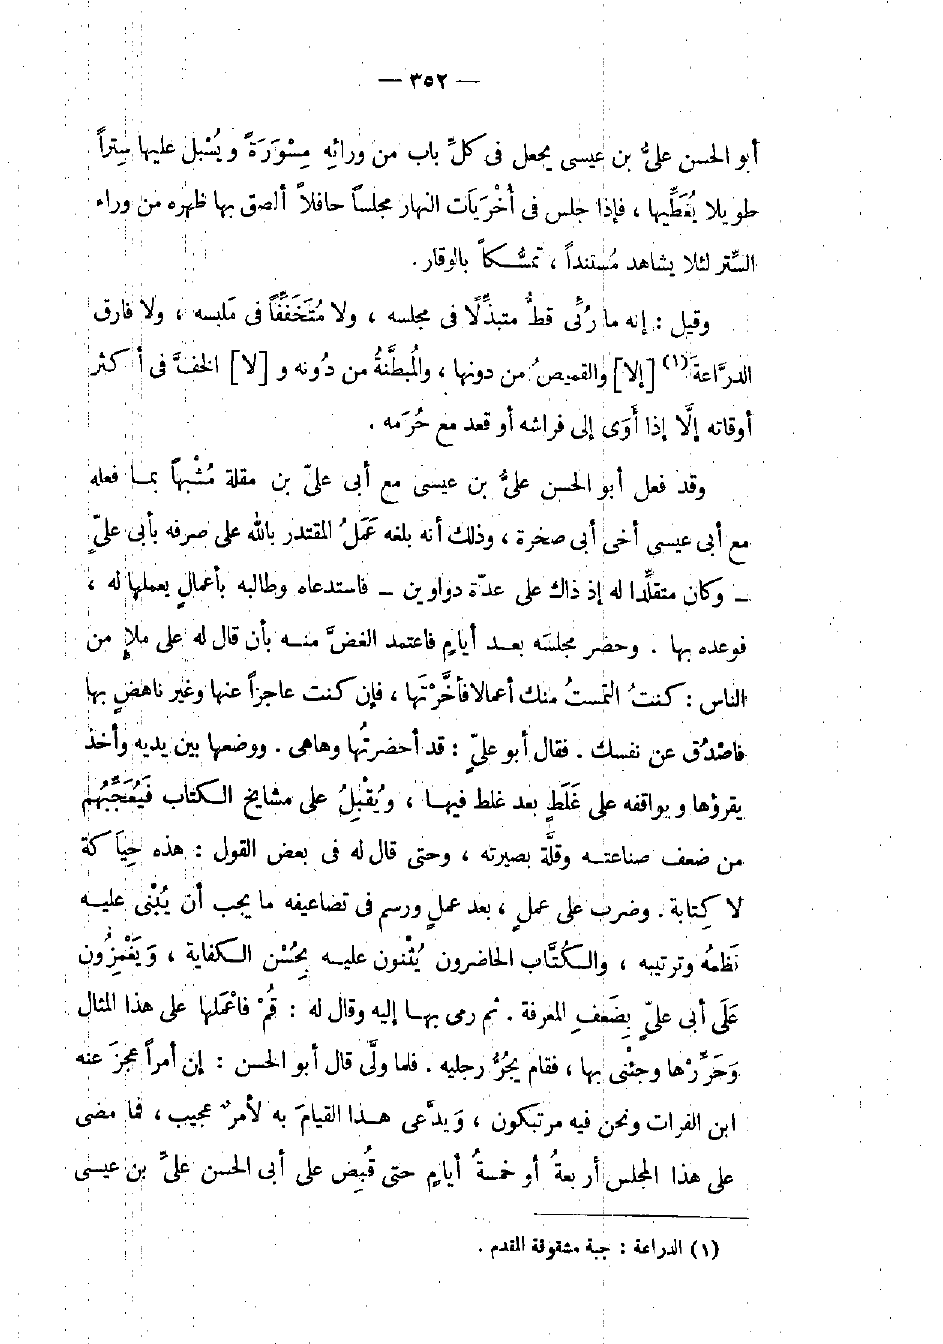 — ٣٥٢ —
أبو الحسن علىُّ بن عيسى يجعل فى كلِّ باب من ورائِه مِسْوَرَةً ويُسْبل عليها سِتراً
طويلا يُغَطِّيها ، فإذا جلس فى أُخْرَيَات النهار مجلساً حافلاً ألصق بها ظهره من وراء
السِّتر لئلا يشاهد مُستنداً ، تمسُّـكاً بالوقار .
وقيل : إنه ما رُئى قطُّ متبذِّلًا فى مجلسه ، ولا مُتَخَفِّفاً فى مَلبسه ، ولا فارق
الدرَّاعةَ(١) [إلا] والقميصُ من دونها ، والمُبطَّنةُ من دُونه و [لا] الخفَّ فى أكثر
أوقاته إلَّا إذا أَوَى إلى فراشه أو قعد مع حُرَمه .
وقد فعل أبو الحسن علىُّ بن عيسى مع أبى علىّ بن مقلة مُشْبهاً بمـا فعله
مع أبى عيسى أخى أبى صخرة ، وذلك أنه بلغه عَمَلُ المقتدر بالله على صرفه بأبى علىّ
ــ وكان متقلِّدا له إذ ذاك على عدّة دواوين ــ فاستدعاه وطالبه بأعمالٍ يعملها له ،
فوعده بها . وحضر مجلسَه بعـد أيامٍ فاعتمد الغضَّ منـه بأن قال له على ملإٍ من
الناس : كنتُ التمستُ منك أعمالا فأخَّرْتَها ، فإن كنت عاجزاً عنها وغير ناهضٍ بها
فاصْدُق عن نفسك . فقال أبو علىّ : قد أحضرتُها وهاهى . ووضعها بين يديه وأخذ
يقرؤها ويواقفه على غَلَطٍ بعد غلط فيهـا ، ويُقْبِلُ على مشايخ الـكتاب فَيُعَجِّبُهُم
من ضعف صناعتـه وقلَّة بصيرته ، وحتى قال له فى بعض القول : هذه حِيَاكة
لا كِتابة . وضرب على عملٍ ، بعد عملٍ ورسم فى تضاعيفه ما يجب أن يُبْنى عليـه
نَظمُه وترتيبه ، والـكُتَّاب الحاضرون يُثْنون عليـه بِحُسْن الـكفاية ، وَيَغْمِزُون
عَلَى أبى علىٍّ بِضَعفِ المعرفة . ثم رمى بهـا إليه وقال له : قُمْ فاعْملها على هذا المثال
وَحَرِّرْها وجئْنى بها ، فقام يجرُّ رجليه . فلما ولَّى قال أبو الحسن : إن أمراً عجزَ عنه
ابن الفرات ونحن فيه مرتبكون ، وَيدَّعى هـذا القيامَ به لأمر عجيب ، فما مضى
على هذا المجلس أربعةُ أو خمسةُ أيامٍ حتى قُبِض على أبى الحسن علىِّ بن عيسى
(١) الدراعة : جبة مشقوقة المقدم .